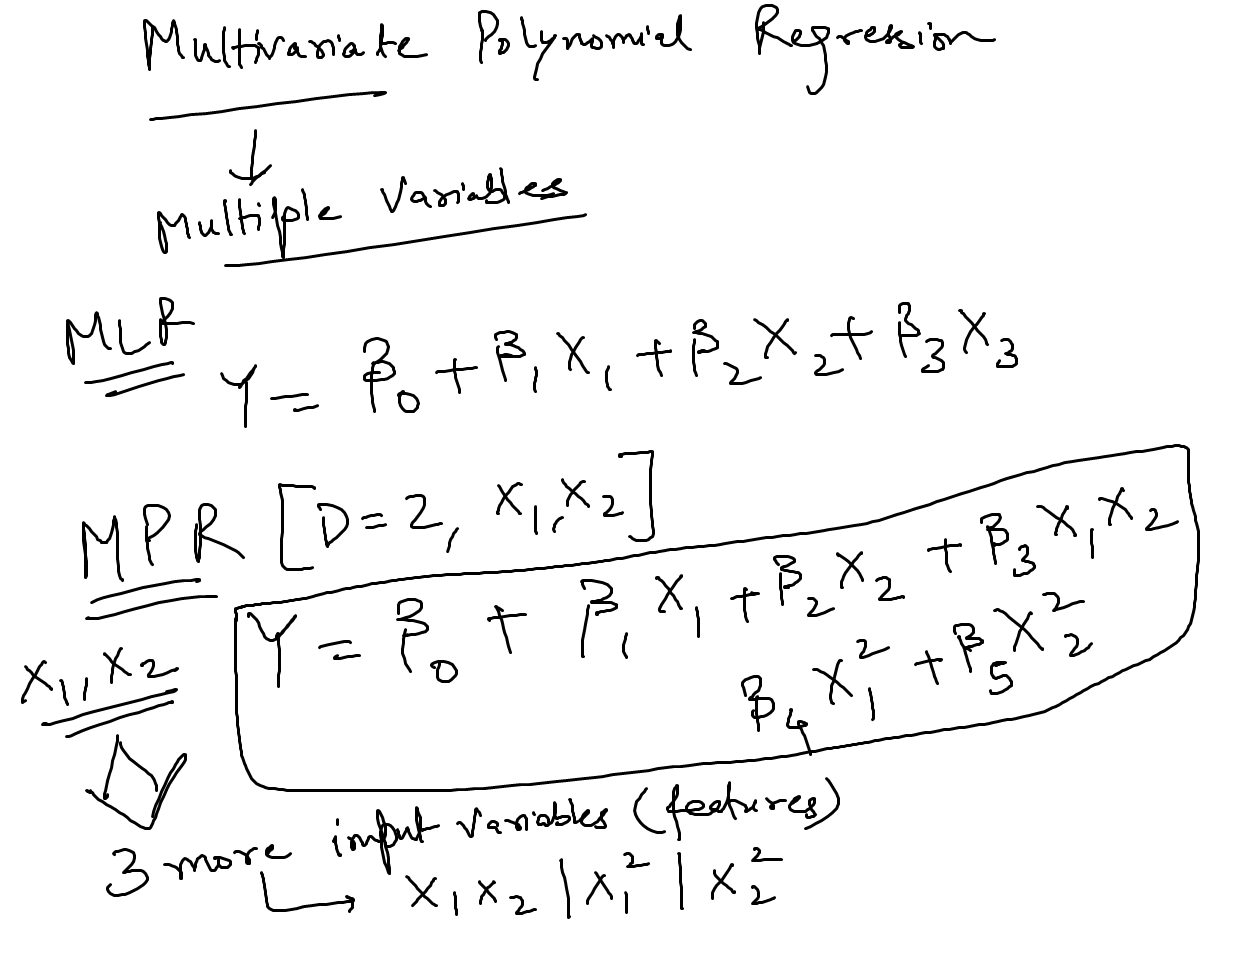 Multivariate Polynomial Regression
↓
Multiple Variables
MLR
Y = β₀ + β₁X₁ + β₂X₂ + β₃X₃
MPR [D=2, X₁,X₂]
Y = β₀ + β₁X₁ + β₂X₂ + β₃X₁X₂
β₄X₁² + β₅X₂²
X₁,X₂
3 more input variables (features)
→ X₁X₂ | X₁² | X₂²